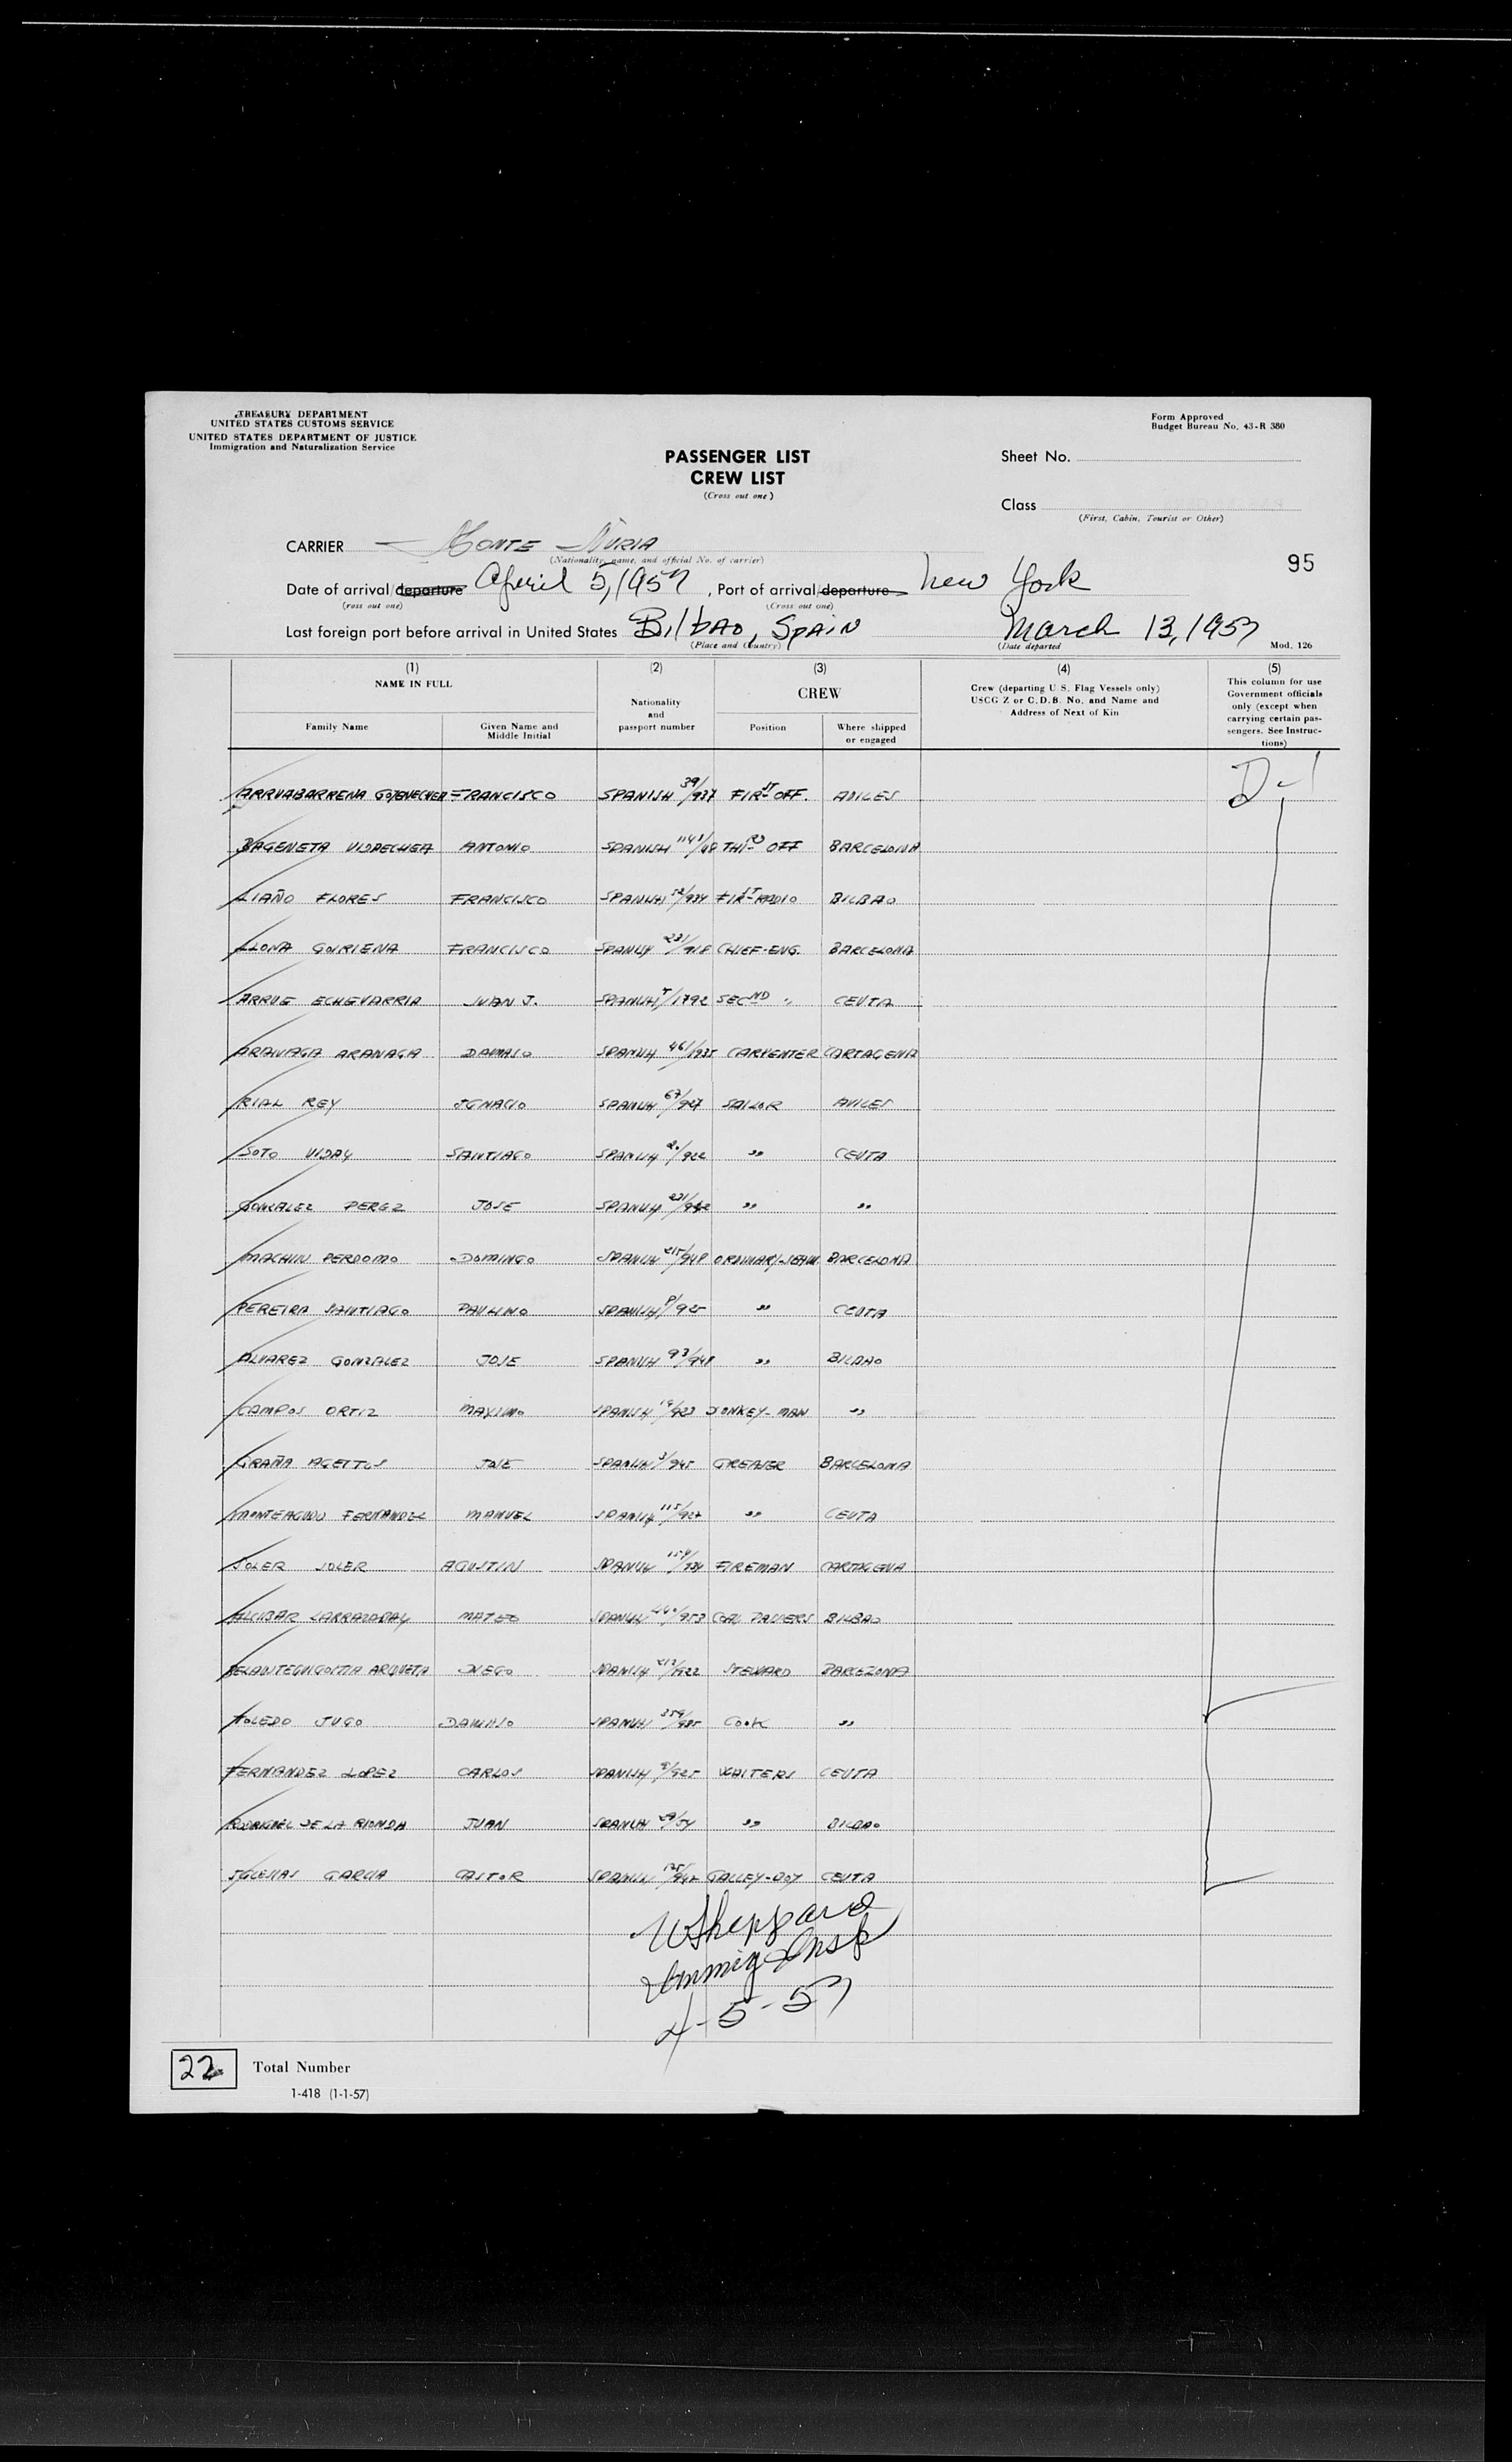 TREASURY DEPARTMENT
UNITED STATES CUSTOMS SERVICE
UNITED STATES DEPARTMENT OF JUSTICE
Immigration and Naturalization Service
Form Approved
Budget Bureau No. 43-R 380
PASSENGER LIST
CREW LIST
(Cross out one)
Sheet No.
Class
(First, Cabin, Tourist or Other)
CARRIER MONTE NURIA
(Nationality, name, and official No. of carrier)
95
Date of arrival/departure April 5, 1957, Port of arrival/departure New York
(ross out one) (Cross out one)
Last foreign port before arrival in United States Bilbao, Spain March 13, 1957
(Place and Country) (Date departed Mod. 126
(1) (2) (3) (4) (5)
NAME IN FULL Nationality and passport number CREW Crew (departing U.S. Flag Vessels only) USCG Z or C.D.B. No. and Name and Address of Next of Kin This column for use Government officials only (except when carrying certain passengers. See Instructions)
Family Name Given Name and Middle Initial Position Where shipped or engaged
ARRUABARRENA FRANCISCO SPANISH 39/937 FIRST OFF. D-1
ANTONIO SPANISH THIRD OFF BARCELONA
LIAÑO FLORES FRANCISCO SPANISH FIRST RADIO BILBAO
LLONA GOIRIENA FRANCISCO SPANISH 231/918 CHIEF-ENG. BARCELONA
ARRUE ECHEVARRIA JUAN J. SPANISH 5/1792 SECND " CEUTA
ARANAGA ARANAGA DAMASO SPANISH 461/935 CARPENTER CARTAGENA
RIAL REY IGNACIO SPANISH 67/927 SAILOR AVILES
SOTO VIDAL SANTIAGO SPANISH 20/922 " CEUTA
GONZALEZ PEREZ JOSE SPANISH " "
MACHIN PERDOMO DOMINGO SPANISH 215/948 ORDINARY-SEAM BARCELONA
PEREIRA SANTIAGO PAULINO SPANISH 8/925 " CEUTA
ALVAREZ GONZALEZ JOSE SPANISH 93/948 " BILBAO
CAMPOS ORTIZ MAXIMO SPANISH 19/923 DONKEY-MAN "
GRAÑA AGEITOS JOSE SPANISH 3/945 GREASER BARCELONA
MONTEAGUDO FERNANDEZ MANUEL SPANISH 115/927 " CEUTA
SOLER SOLER AGUSTIN SPANISH FIREMAN CARTAGENA
ALCIBAR MATEO SPANISH COAL PASSERS BILBAO
DIEGO SPANISH 212/1922 STEWARD BARCELONA
TOLEDO JUGO DAMASO SPANISH 359/935 COOK "
FERNANDEZ LOPEZ CARLOS SPANISH WAITERS CEUTA
RODRIGUEZ DE LA RIONDA JUAN SPANISH 29/54 " BILBAO
IGLESIAS GARCIA CASTOR SPANISH GALLEY-BOY CEUTA
W Sheppard
Immig Insp
4-5-57
22 Total Number
1-418 (1-1-57)